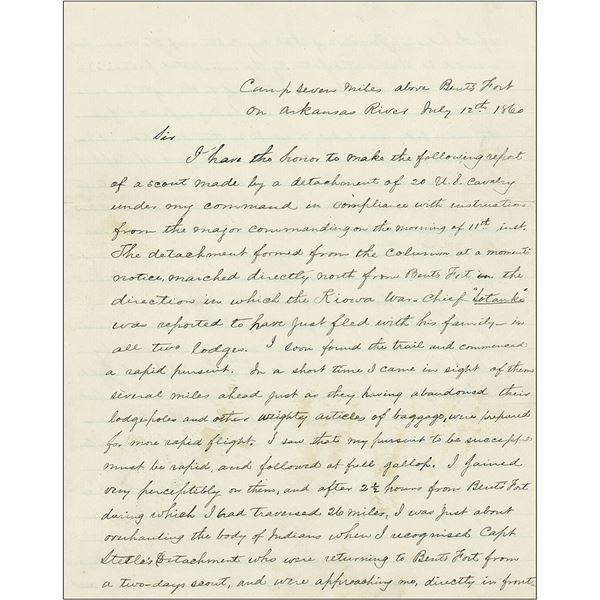 Camp seven miles above Bents Fort
on Arkansas River July 12th 1860
Sir
I have the honor to make the following report
of a scout made by a detachment of 20 U.S. Cavalry
under my command in compliance with instructions
from the major commanding on the morning of 11th inst.
The detachment formed from the column at a moments
notice, marched directly north from Bents Fort in the
direction in which the Kiowa War-Chief "Sotanke"
was reported to have just fled with his family - in
all two lodges. I soon found the trail and commenced
a rapid pursuit. In a short time I came in sight of them
several miles ahead just as they having abandoned their
lodgepoles and other weighty articles of baggage, were prepared
for more rapid flight. I saw that my pursuit to be successful
must be rapid, and followed at full gallop. I gained
very perceptibly on them, and after 2½ hours from Bents Fort
during which I had traversed 26 miles, I was just about
overhauling the body of Indians when I recognised Capt
Steele's Detachment who were returning to Bents Fort from
a two-days scout, and were approaching me, directly in front